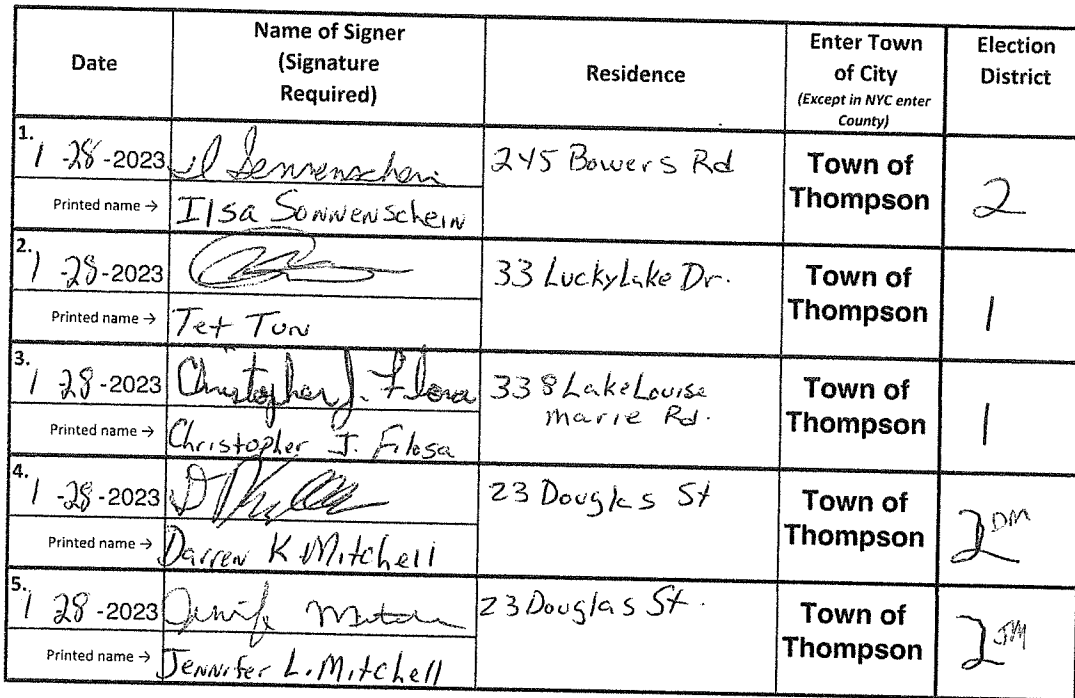 Date
Name of Signer
(Signature
Required)
Residence
Enter Town
of City
(Except in NYC enter
County)
Election
District
1.
1 -28-2023
Il Sonnenschein
245 Bowers Rd
Town of
Thompson
2
Printed name →
Ilsa Sonnenschein
2.
1 -28-2023
33 Lucky Lake Dr.
Town of
Thompson
1
Printed name →
Tet Tun
3.
1 28-2023
Christopher J. Filosa
338 Lake Louise
Marie Rd.
Town of
Thompson
1
Printed name →
Christopher J. Filosa
4.
1 -28-2023
23 Douglas St
Town of
Thompson
2 DM
Printed name →
Darren K Mitchell
5.
1 28-2023
23 Douglas St.
Town of
Thompson
2 JM
Printed name →
Jennifer L. Mitchell